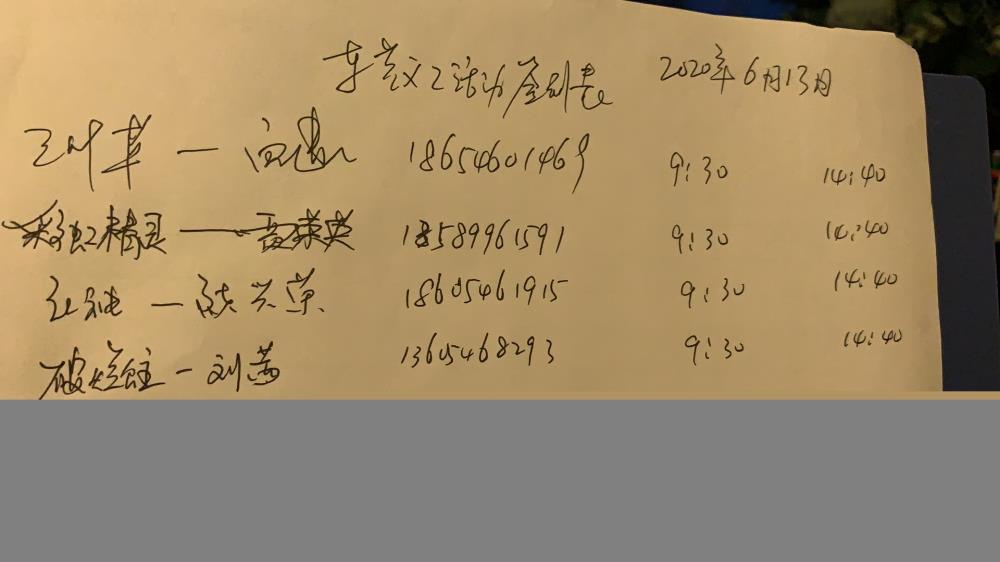 东营义工活动签到表 2020年6月13日
三叶草 — 18654601469 9:30 14:40
彩虹精灵 — 高荣英 18589961591 9:30 14:40
— 兴荣 18605461915 9:30 14:40
破烂主 — 刘茜 13605468293 9:30 14:40